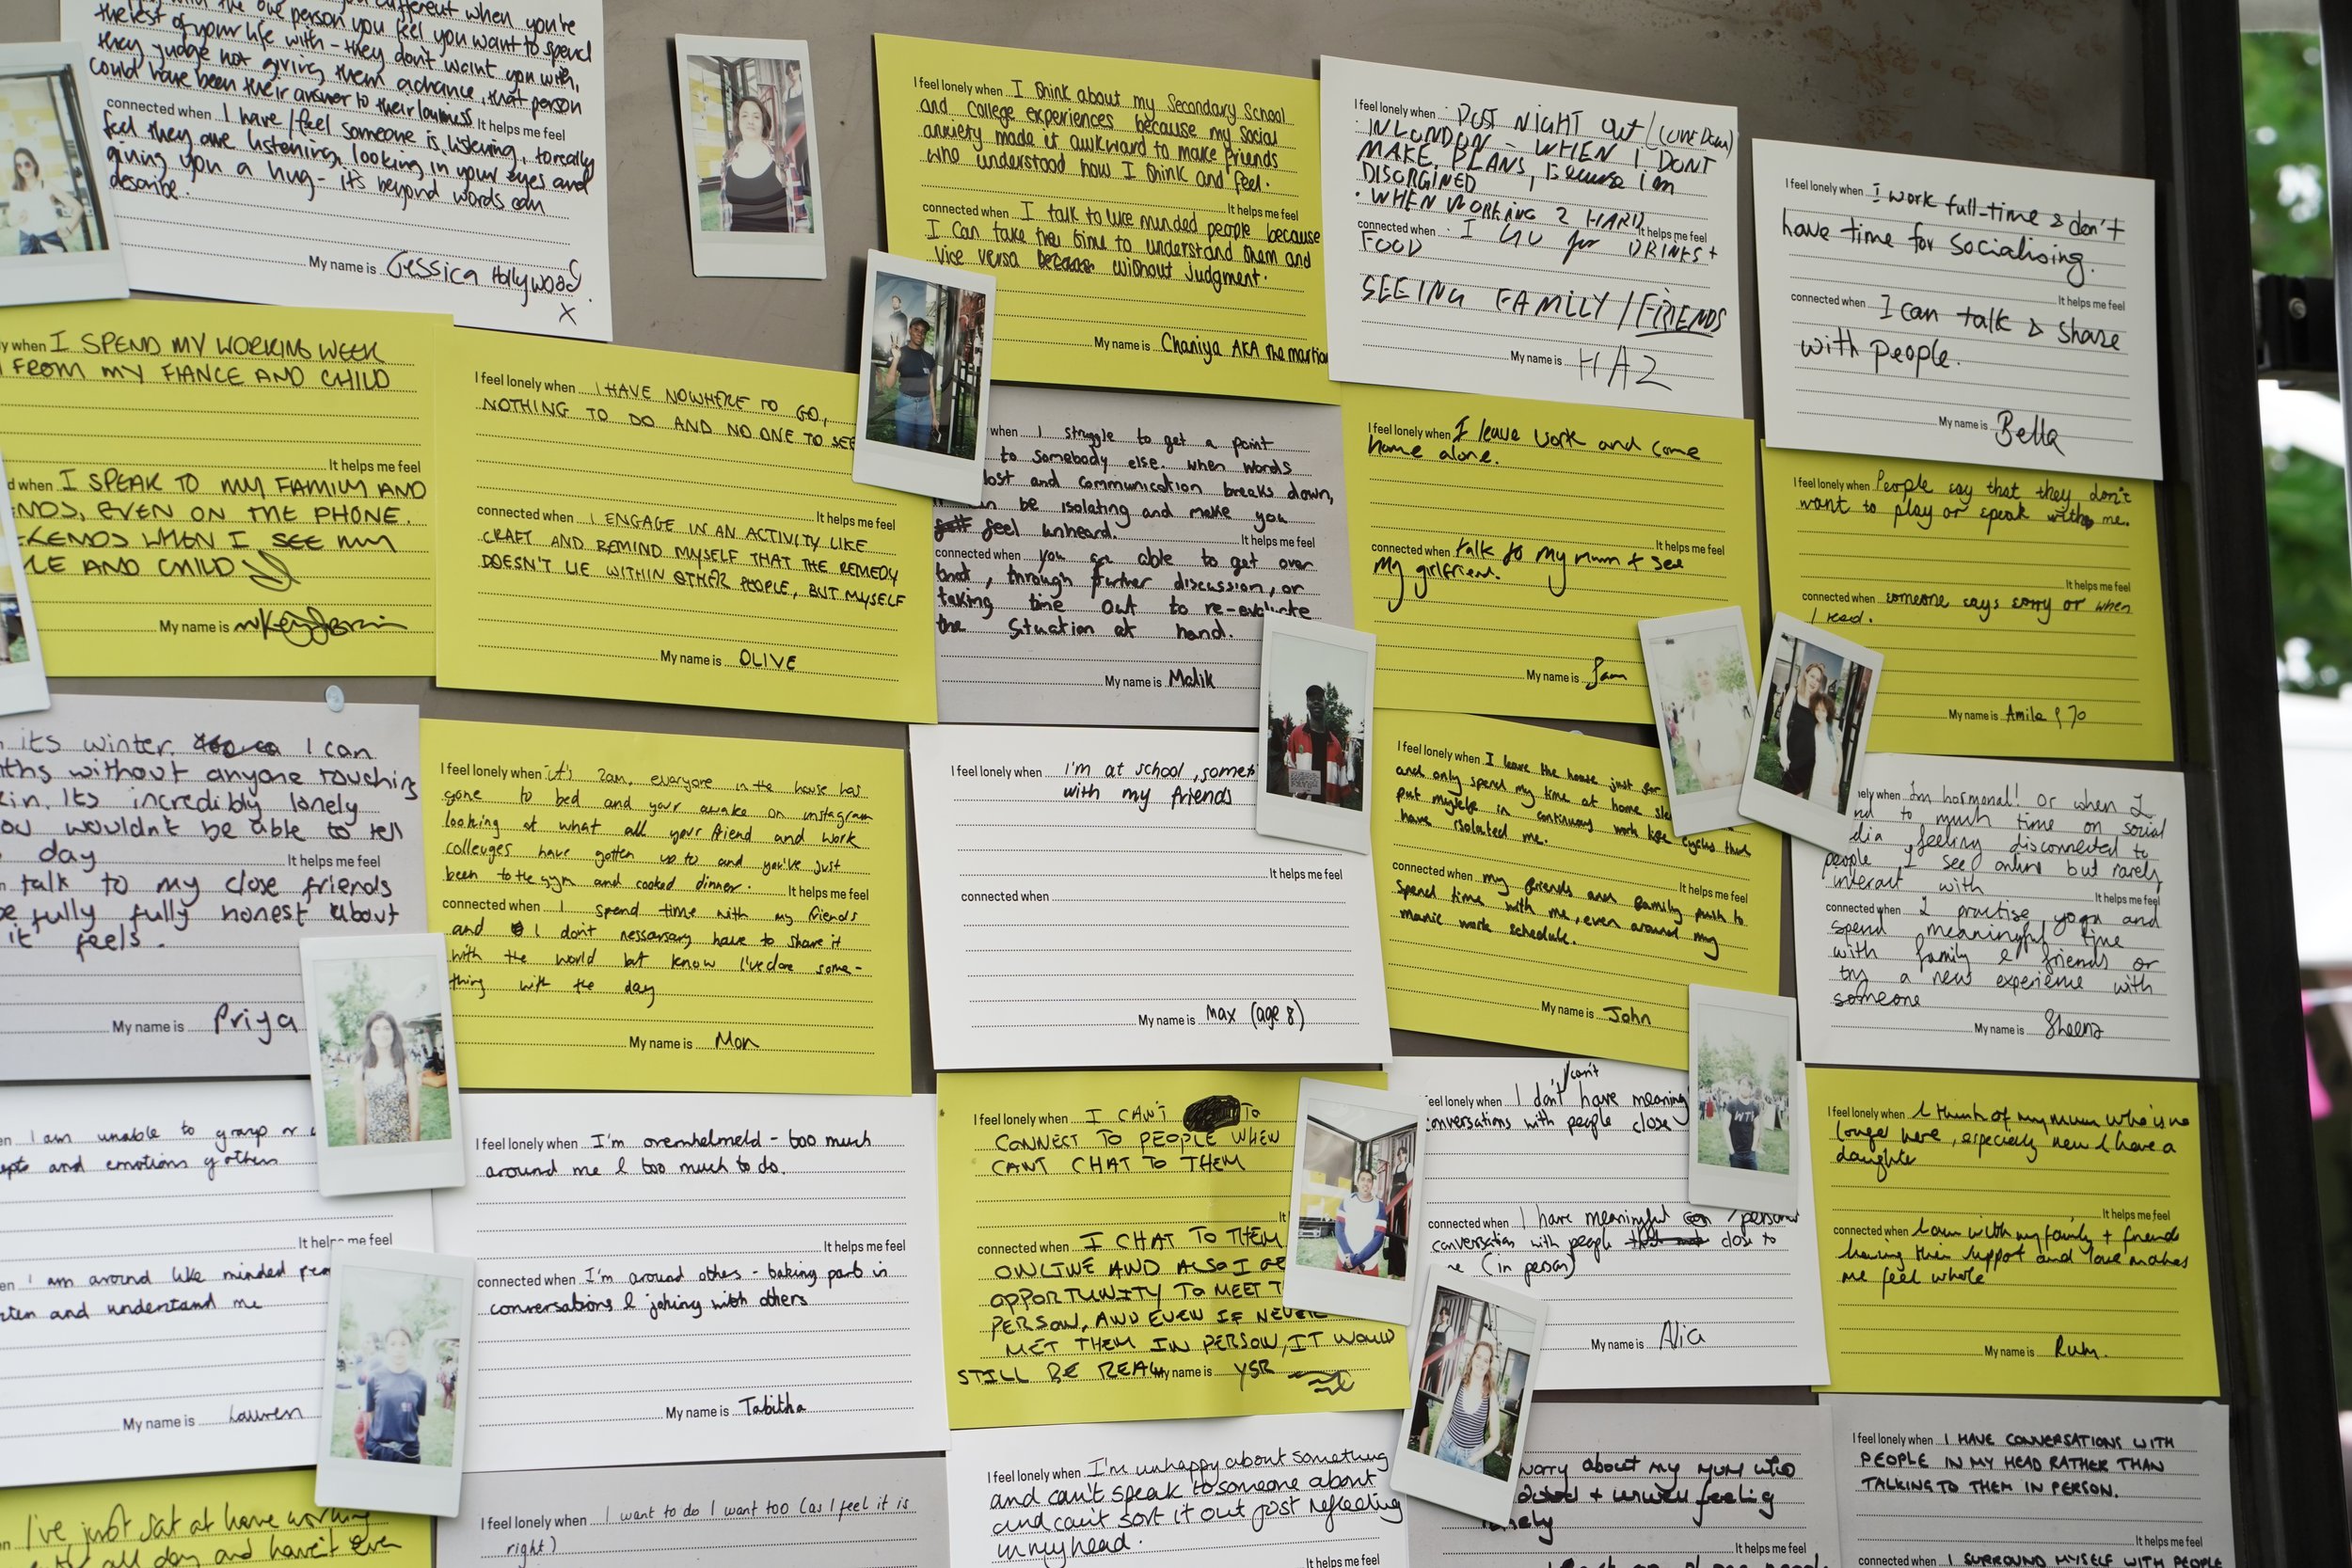 different when you're
the one person you feel you want to spend
the rest of your life with - they don't want you with,
they judge not giving them a chance, that person
could have been their answer to their
connected when I have/feel someone is listening, to really It helps me feel
feel they are listening, looking in your eyes and
giving you a hug - it's beyond words can
describe.
My name is Jessica Hollywood
x
I feel lonely when I think about my Secondary School
and college experiences because my social
anxiety made it awkward to make friends
who understood how I think and feel.
It helps me feel
connected when I talk to like minded people because
I can take the time to understand them and
vice versa without judgment.
My name is Chaniya AKA the martian
I feel lonely when POST NIGHT OUT
IN LONDON - WHEN I DONT
MAKE PLANS,
• WHEN WORKING 2 HARD
It helps me feel
connected when • I GO for DRINKS +
FOOD
SEEING FAMILY / FRIENDS
My name is HAZ
I feel lonely when I work full-time & don't
have time for socialising.
It helps me feel
connected when I can talk & share
with people.
My name is Bella
when I SPEND MY WORKING WEEK
FROM MY FIANCE AND CHILD
It helps me feel
when I SPEAK TO MY FAMILY AND
EVEN ON THE PHONE.
WHEN I SEE MY
AND CHILD
My name is
I feel lonely when I HAVE NOWHERE TO GO,
NOTHING TO DO AND NO ONE TO SEE
It helps me feel
connected when I ENGAGE IN AN ACTIVITY LIKE
CRAFT AND REMIND MYSELF THAT THE REMEDY
DOESN'T LIE WITHIN OTHER PEOPLE, BUT MYSELF
My name is OLIVE
when I struggle to get a point
to somebody else. when words
lost and communication breaks down,
be isolating and make you
feel unheard.
It helps me feel
connected when you are able to get over
that, through further discussion, or
taking time out to re-evaluate
the situation at hand.
My name is Malik
I feel lonely when I leave work and come
home alone.
It helps me feel
connected when talk to my mum + see
my girlfriend.
My name is Sam
I feel lonely when People say that they don't
want to play or speak with me.
It helps me feel
connected when someone says sorry or when
I read.
My name is
its winter. I can
without anyone touching
Its incredibly lonely
wouldn't be able to tell
day
It helps me feel
talk to my close friends
fully fully honest about
it feels.
My name is Priya
I feel lonely when it's 2am, everyone in the house has
gone to bed and your awake on instagram
looking at what all your friend and work
colleuges have gotten up to and you've just
been to the gym and cooked dinner. It helps me feel
connected when I spend time with my friends
and I don't nessarsary have to share it
with the world but know I've done some-
thing with the day
My name is Mon
I feel lonely when I'm at school,
with my friends
It helps me feel
connected when
My name is Max (age 8)
I feel lonely when I leave the house just for
and only spend my time at home
put myself in continuous work life cycles that
have isolated me.
It helps me feel
connected when my friends and family push to
spend time with me, even around my
manic work schedule.
My name is John
when I'm hormonal! Or when I
to much time on social
feeling disconnected to
people I see online but rarely
interact with
It helps me feel
connected when I practise yoga and
spend meaningful time
with family & friends or
try a new experience with
someone
My name is Sheena
I am unable to
and emotions of others
It helps me feel
I am around like minded
and understand me
My name is Lauren
I feel lonely when I'm overwhelmeld - too much
around me & too much to do.
It helps me feel
connected when I'm around others - taking part in
conversations & joking with others
My name is Tabitha
I feel lonely when I CAN'T TO
CONNECT TO PEOPLE WHEN
CANT CHAT TO THEM
connected when I CHAT TO THEM
ONLINE AND ALSO I
OPPORTUNITY TO MEET
PERSON, AND EVEN IF NEVER
MET THEM IN PERSON, IT WOULD
STILL BE REAL
My name is YSR
feel lonely when I don't/can't have
conversations with people close
connected when I have meaningful /personal
conversation with people close to
me (in person)
My name is Alia
I feel lonely when I think of my mum who is no
longer here, especially now I have a
daughter
It helps me feel
connected when I am with my family + friends
having their support and love makes
me feel whole
My name is
I've just sat at home working
all day and haven't even
I feel lonely when I want to do I want too (as I feel it is
right)
I feel lonely when I'm unhappy about something
and can't speak to someone about
and can't sort it out just reflecting
in my head.
It helps me feel
worry about my mum who
+ unwell feeling
lonely
It helps me feel
I feel lonely when I HAVE CONVERSATIONS WITH
PEOPLE IN MY HEAD RATHER THAN
TALKING TO THEM IN PERSON.
It helps me feel
connected when I SURROUND MYSELF WITH PEOPLE